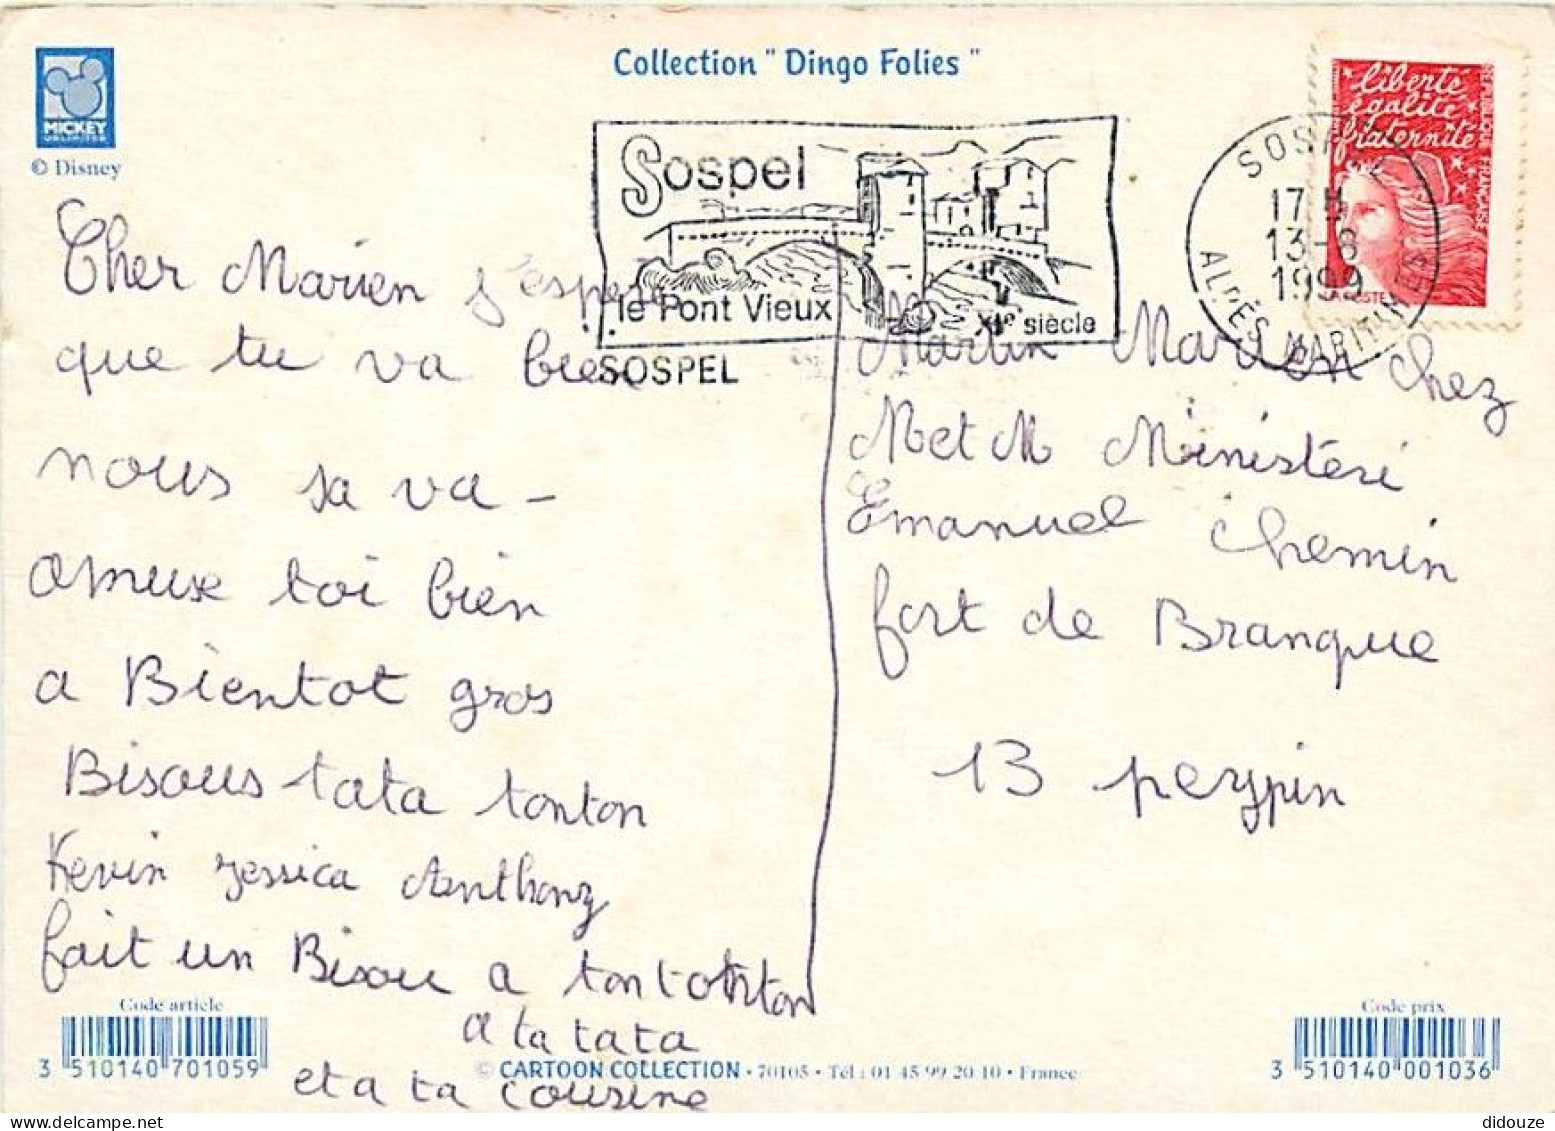 Collection " Dingo Folies "
MICKEY
UNLIMITED
© Disney
Sospel
le Pont Vieux
XIe siècle
SOSPEL
SOSPEL
17 H
13-8
1999
ALPES MARITIMES
liberté
égalité
fraternité
RÉPUBLIQUE FRANÇAISE
LA POSTE
Cher Marien j'espère
que tu va bien
nous sa va -
amuse toi bien
a Bientot gros
Bisous tata tonton
Kevin Jessica Anthony
fait un Bisou a tonton
a ta tata
et a ta cousine
Martin Marien chez
M et M Ministeri
Emanuel chemin
fort de Branque
13 peypin
Code article
3 510140 701059
© CARTOON COLLECTION • 70105 • Tél : 01 45 99 20 10 • France
Code prix
3 510140 001036
didouze